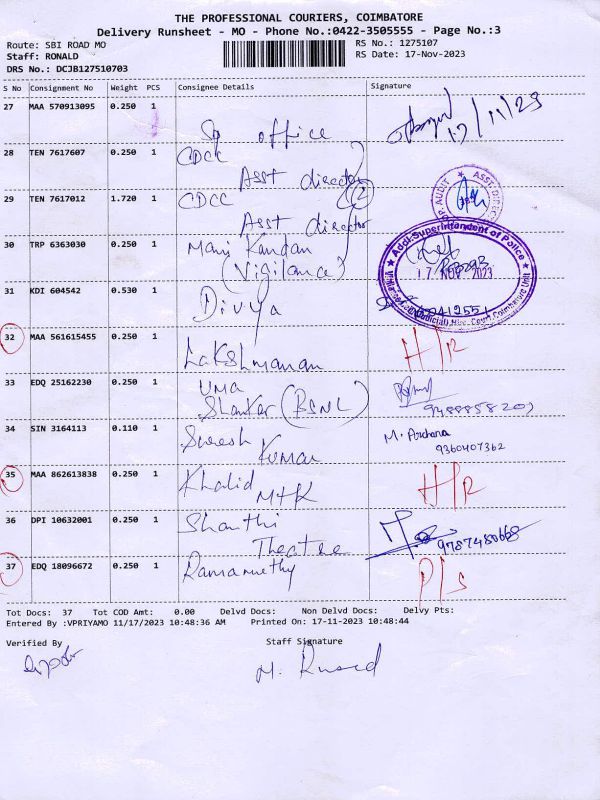 THE PROFESSIONAL COURIERS, COIMBATORE
Delivery Runsheet - MO - Phone No.:0422-3505555 - Page No.:3
Route: SBI ROAD MO
RS No.: 1275107
Staff: RONALD
RS Date: 17-Nov-2023
DRS No.: DCJB127510703
S No Consignment No Weight PCS Consignee Details Signature
27 MAA 570913095 0.250 1
office 17/11/23
28 TEN 7617607 0.250 1 CDCC
Asst director
29 TEN 7617012 1.720 1 CDCC (2)
Asst director
30 TRP 6363030 0.250 1 Mani Kandan
(Vigilance)
Addl.Superintendent of Police
17 NOV 2023
31 KDI 604542 0.530 1 Divya
32 MAA 561615455 0.250 1 Lakshmanan H/R
33 EDQ 25162230 0.250 1 Uma
Shankar (BSNL)
34 SIN 3164113 0.110 1 Suresh Kumar M. Archana
9360407362
35 MAA 862613838 0.250 1 Khalid MTK H/R
36 DPI 10632001 0.250 1 Shanthi
Theatre
37 EDQ 18096672 0.250 1 Ramamurthy P/S
Tot Docs: 37 Tot COD Amt: 0.00 Delvd Docs: Non Delvd Docs: Delvy Pts:
Entered By :VPRIYAMO 11/17/2023 10:48:36 AM Printed On: 17-11-2023 10:48:44
Verified By Staff Signature